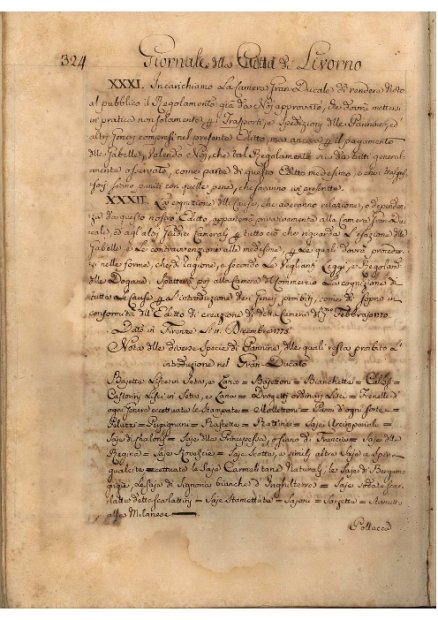 324 Giornale della Città di Livorno
XXXI. Incarichiamo La Camera Gran Ducale di rendere Noto
al pubblico il Regolamento già da Noj approvato, che dovrà mettersi
in pratica non solamente Trasporti, e Spedizioni delle Pannine, ed
altri Generi compresi nel presente Editto, ma ancora il pagamento
delle Gabelle, Volendo Noj, che tal Regolamento sia da tutti general-
mente osservato, come parte di questo Editto medesimo, e che i
sieno puniti con quelle pene, che saranno ivi prescritte.
XXXII. La cognizione delle Cause, che averanno relazione, o dependen-
za da questo nostro Editto apparterrà privativamente alla Camera Gran Du-
cale, ed agl'altri Giudici Camerali tutto ciò che riguarda L'esazione delle
Gabelle, e Le contravenzioni alle medesime, Le quali dovrà procede-
re nelle forme, che di ragione, e secondo Le Veglianti Leggi, e Regolamti
delle Dogane. Spetterà poi alla Camera di Commercio La cognizione di
tutte Le Cause L'introduzione dei Generi proibiti, come di sopra in
conformità dell'Editto di creazione di detta Camera Febbrajo 1770.
Dato in Firenze Li Dicembre 1775
Nota delle diverse Specie di Pannine, delle quali resta proibita L'
introduzione nel Gran-Ducato
Bajette Lisce in Seta, o Lana = Bajettoni = Bianchette =
Castorini Lisci in Seta, e Lana = Droghetti ordinarj Lisci = Frenelle di
ogni genere eccettuate Le Stampate = Mollettoni = Panni d'ogni sorte =
Peluzzi = Perpignani = Rascette = Rattine = Saje
Saje di Chalons = Saje della Principessa, o siano di Francia = Saje della
Regina = Saje Rovescie = Saje Scotte, e simili, altre Saje
qualsisia eccettuate Le Saje Carmelitane Naturali, le Saje di
Le Saje di Signoria bianche d'Inghilterra = Saje
= Saje Stamettate = Sajoni = Sargette = Stametti
alla Milanese